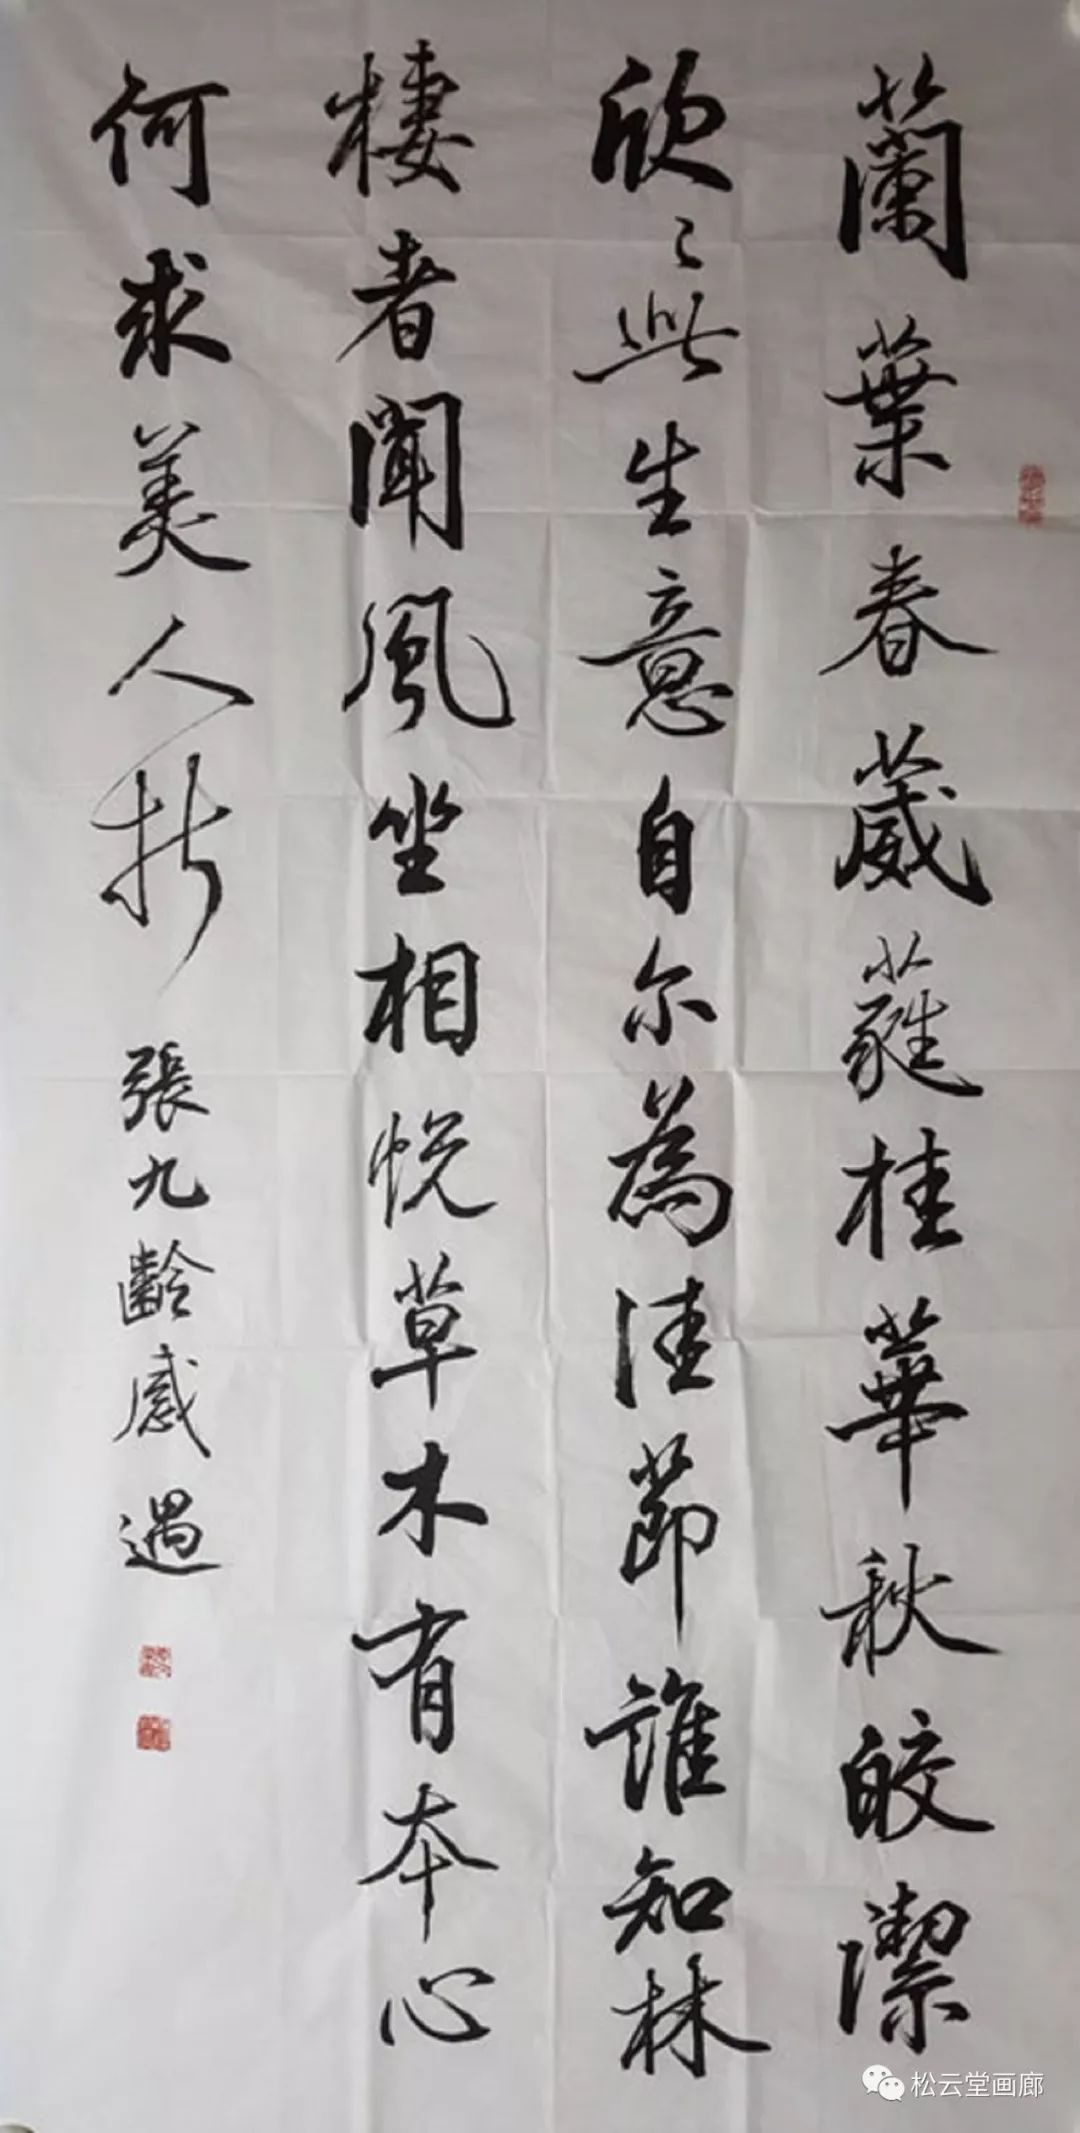 蘭葉春葳蕤桂華秋皎潔
欣〻此生意自尔為佳節誰知林
棲者聞風坐相悅草木有本心
何求美人折
張九齡感遇
松云堂画廊